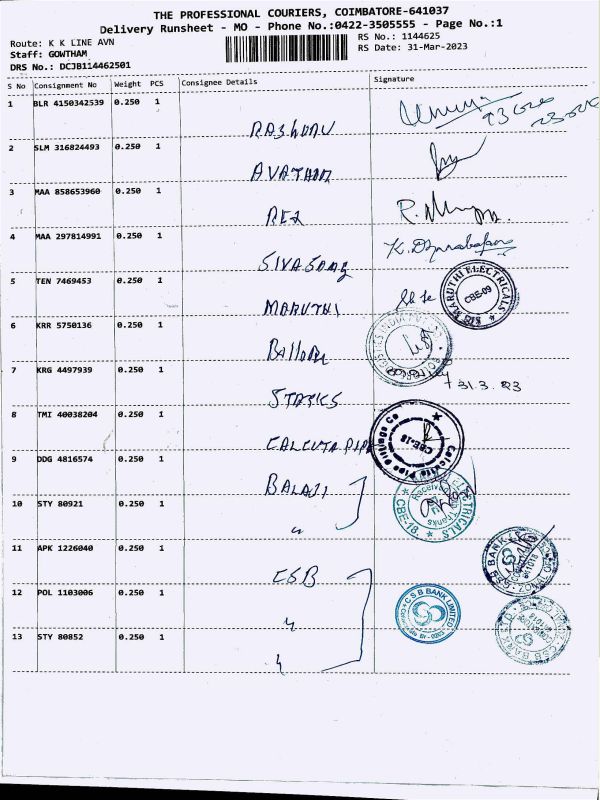 THE PROFESSIONAL COURIERS, COIMBATORE-641037
Delivery Runsheet - MO - Phone No.:0422-3505555 - Page No.:1
Route: K K LINE AVN
RS No.: 1144625
Staff: GOWTHAM
RS Date: 31-Mar-2023
DRS No.: DCJB114462501
S No Consignment No Weight PCS Consignee Details Signature
1 BLR 4150342539 0.250 1
2 SLM 316824493 0.250 1
3 MAA 858653960 0.250 1
4 MAA 297814991 0.250 1
SIVASAMY
5 TEN 7469453 0.250 1
MARUTHI
MARUTHI ELECTRICALS
CBE-09
6 KRR 5750136 0.250 1
7 KRG 4497939 0.250 1
31.3.23
8 TMI 40038204 0.250 1
CALCUTA PIPE
Calcutta Pipe Fittings Co
CBE-18
9 DDG 4816574 0.250 1
BALAJI
Received with Thanks
ELECTRICALS
CBE-18.
10 STY 80921 0.250 1
〃
11 APK 1226040 0.250 1
CSB
CSB BANK
12 POL 1103006 0.250 1
〃
CSB BANK LIMITED
13 STY 80852 0.250 1
〃
CSB BANK LTD.